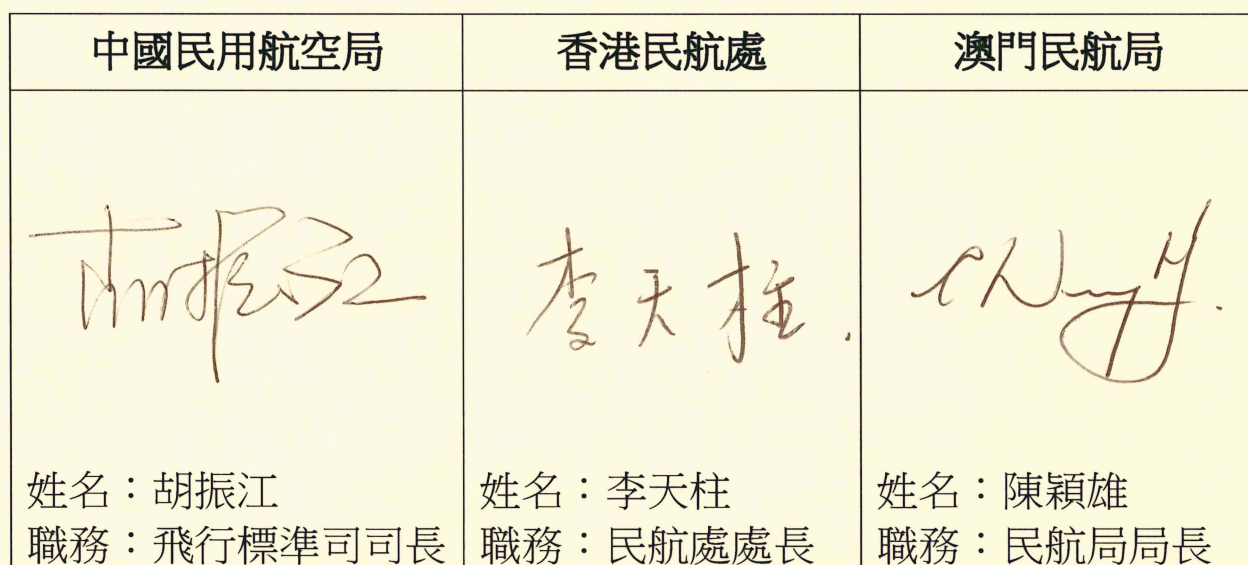 中國民用航空局
香港民航處
澳門民航局
胡振江
李天柱.
姓名：胡振江
職務：飛行標準司司長
姓名：李天柱
職務：民航處處長
姓名：陳穎雄
職務：民航局局長